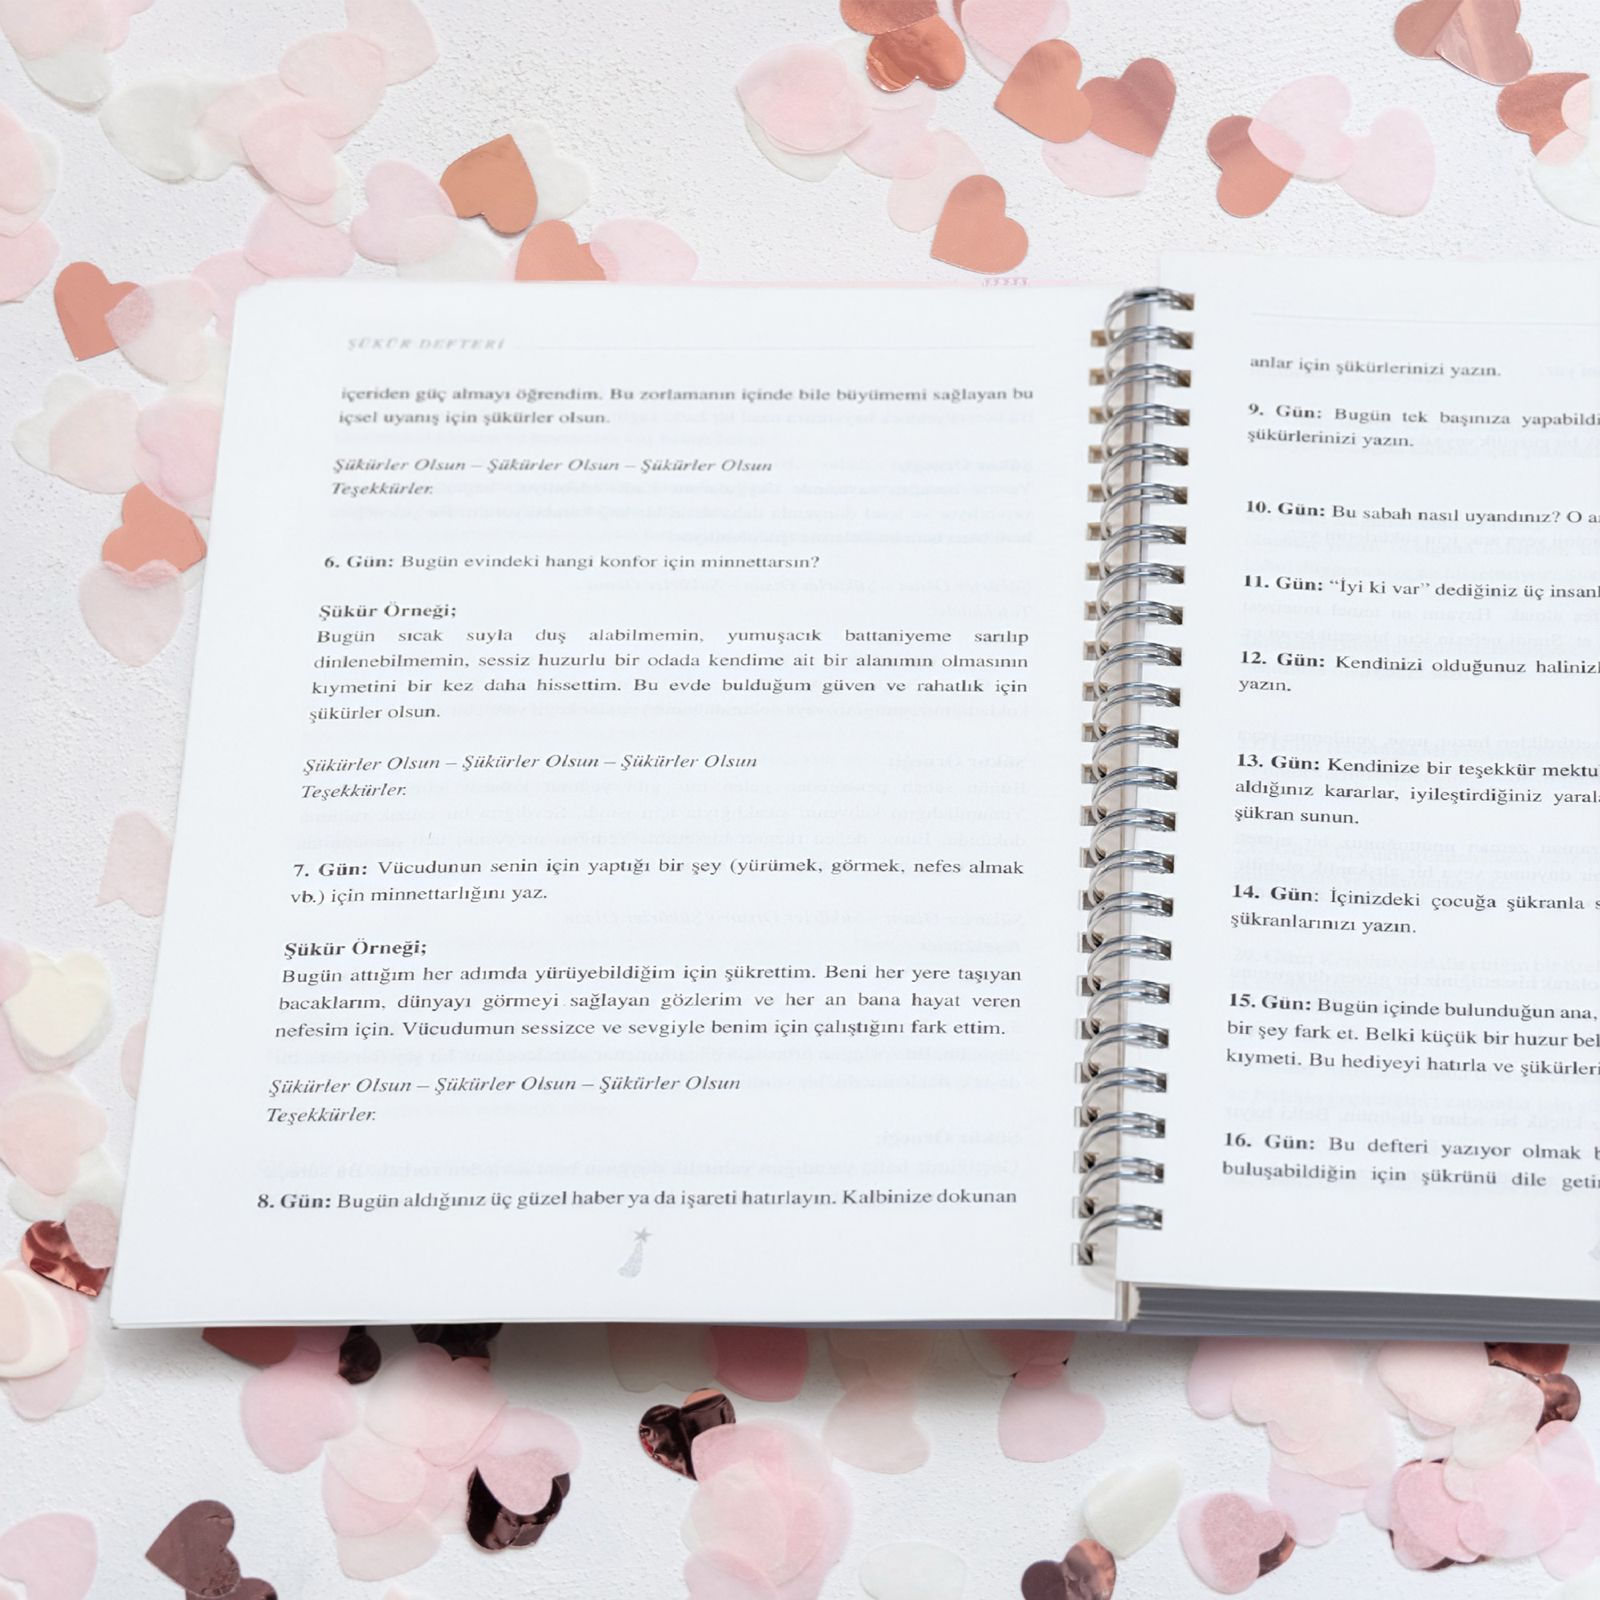 ŞÜKÜR DEFTERİ
içeriden güç almayı öğrendim. Bu zorlamanın içinde bile büyümemi sağlayan bu
içsel uyanış için şükürler olsun.
Şükürler Olsun – Şükürler Olsun – Şükürler Olsun
Teşekkürler.
6. Gün: Bugün evindeki hangi konfor için minnettarsın?
Şükür Örneği;
Bugün sıcak suyla duş alabilmemin, yumuşacık battaniyeme sarılıp
dinlenebilmemin, sessiz huzurlu bir odada kendime ait bir alanımın olmasının
kıymetini bir kez daha hissettim. Bu evde bulduğum güven ve rahatlık için
şükürler olsun.
Şükürler Olsun – Şükürler Olsun – Şükürler Olsun
Teşekkürler.
7. Gün: Vücudunun senin için yaptığı bir şey (yürümek, görmek, nefes almak
vb.) için minnettarlığını yaz.
Şükür Örneği;
Bugün attığım her adımda yürüyebildiğim için şükrettim. Beni her yere taşıyan
bacaklarım, dünyayı görmeyi sağlayan gözlerim ve her an bana hayat veren
nefesim için. Vücudumun sessizce ve sevgiyle benim için çalıştığını fark ettim.
Şükürler Olsun – Şükürler Olsun – Şükürler Olsun
Teşekkürler.
8. Gün: Bugün aldığınız üç güzel haber ya da işareti hatırlayın. Kalbinize dokunan
anlar için şükürlerinizi yazın.
9. Gün: Bugün tek başınıza
şükürlerinizi yazın.
10. Gün: Bu sabah nasıl uyandınız? O
11. Gün: “İyi ki var” dediğiniz üç
12. Gün: Kendinizi olduğunuz
yazın.
13. Gün: Kendinize bir teşekkür
aldığınız kararlar, iyileştirdiğiniz
şükran sunun.
14. Gün: İçinizdeki çocuğa şükranla
şükranlarınızı yazın.
15. Gün: Bugün içinde bulunduğun ana,
bir şey fark et. Belki küçük bir huzur
kıymeti. Bu hediyeyi hatırla ve
16. Gün: Bu defteri yazıyor olmak
buluşabildiğin için şükrünü dile